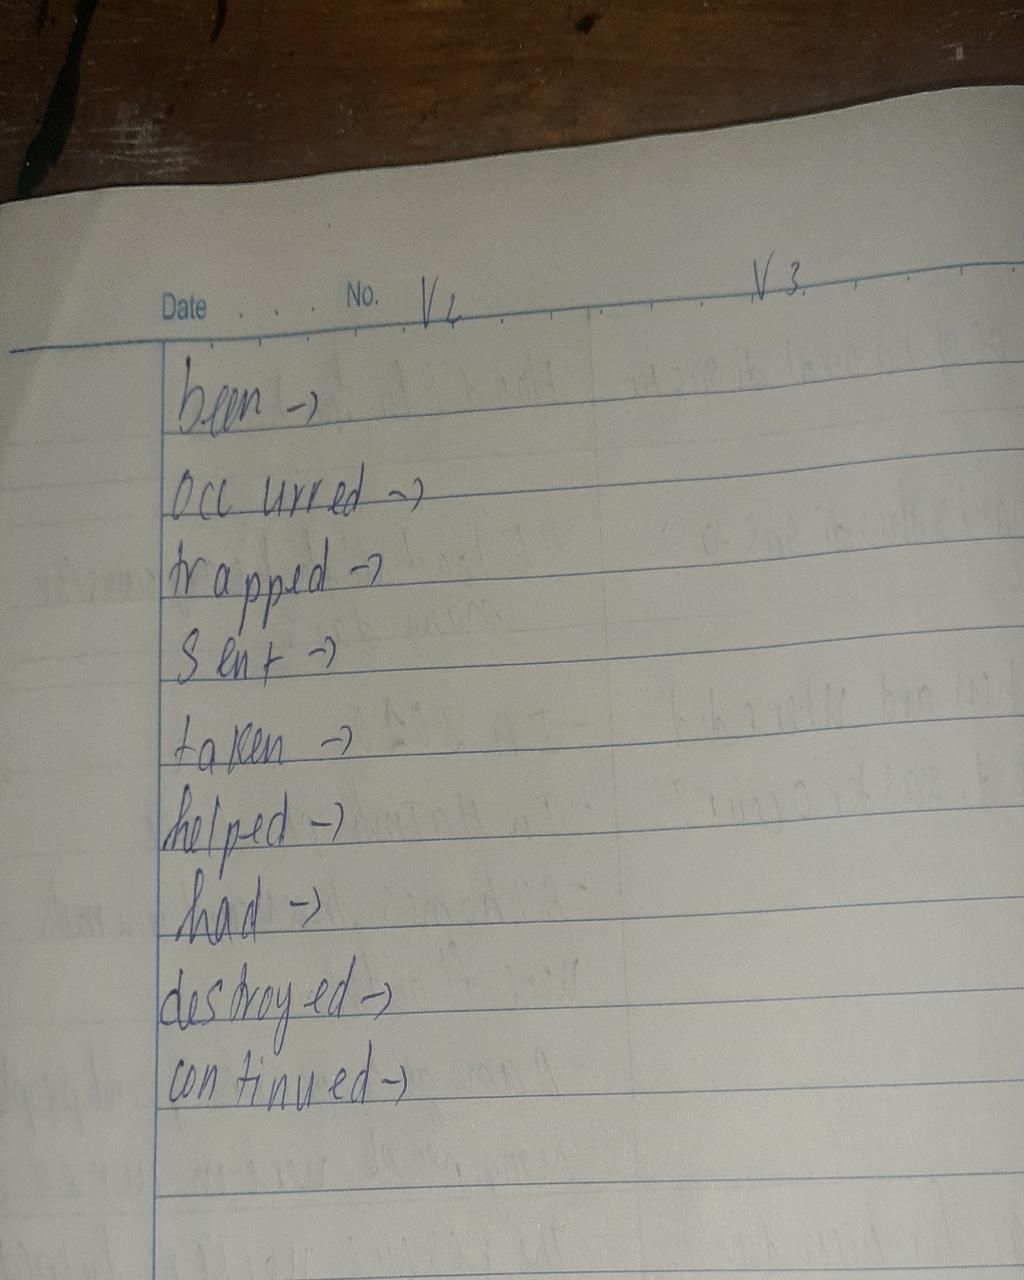 Date . . . . No. V2 V3
been →
occurred →
trapped →
sent →
taken →
helped →
had →
destroyed →
continued →